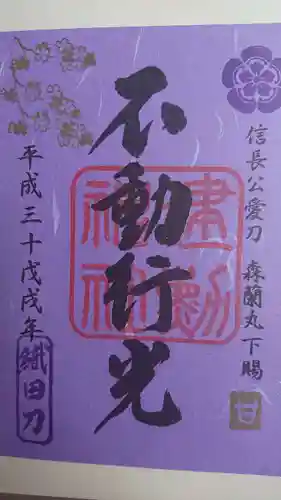 信長公愛刀 森蘭丸下賜
不動行光
建勲神社
平成三十戊戌年
織田刀
甘